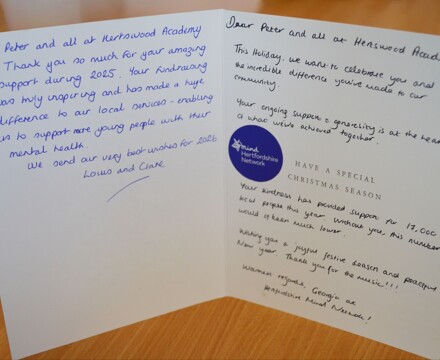 Peter and all at Hertswood Academy
Thank you so much for your amazing
support during 2025. Your fundraising
was truly inspiring and has made a huge
difference to our local services - enabling
us to support more young people with their
mental health.
We send our very best wishes for 2026
Louis and Clare
Dear Peter and all at Hertswood Acade
This Holiday, we want to celebrate you and
the incredible difference you've made to our
community.
Your ongoing support & generosity is at the hea
of what we've achieved together.
mind
Hertfordshire
Network
HAVE A SPECIAL
CHRISTMAS SEASON
Your kindness has provided support for 17,000
local people this year. Without you, this number
would've been much lower.
Wishing you a joyful festive season and peaceful
New year. Thank you for the music!!!
Warmest regards, Georgia
Hertfordshire Mind Network!